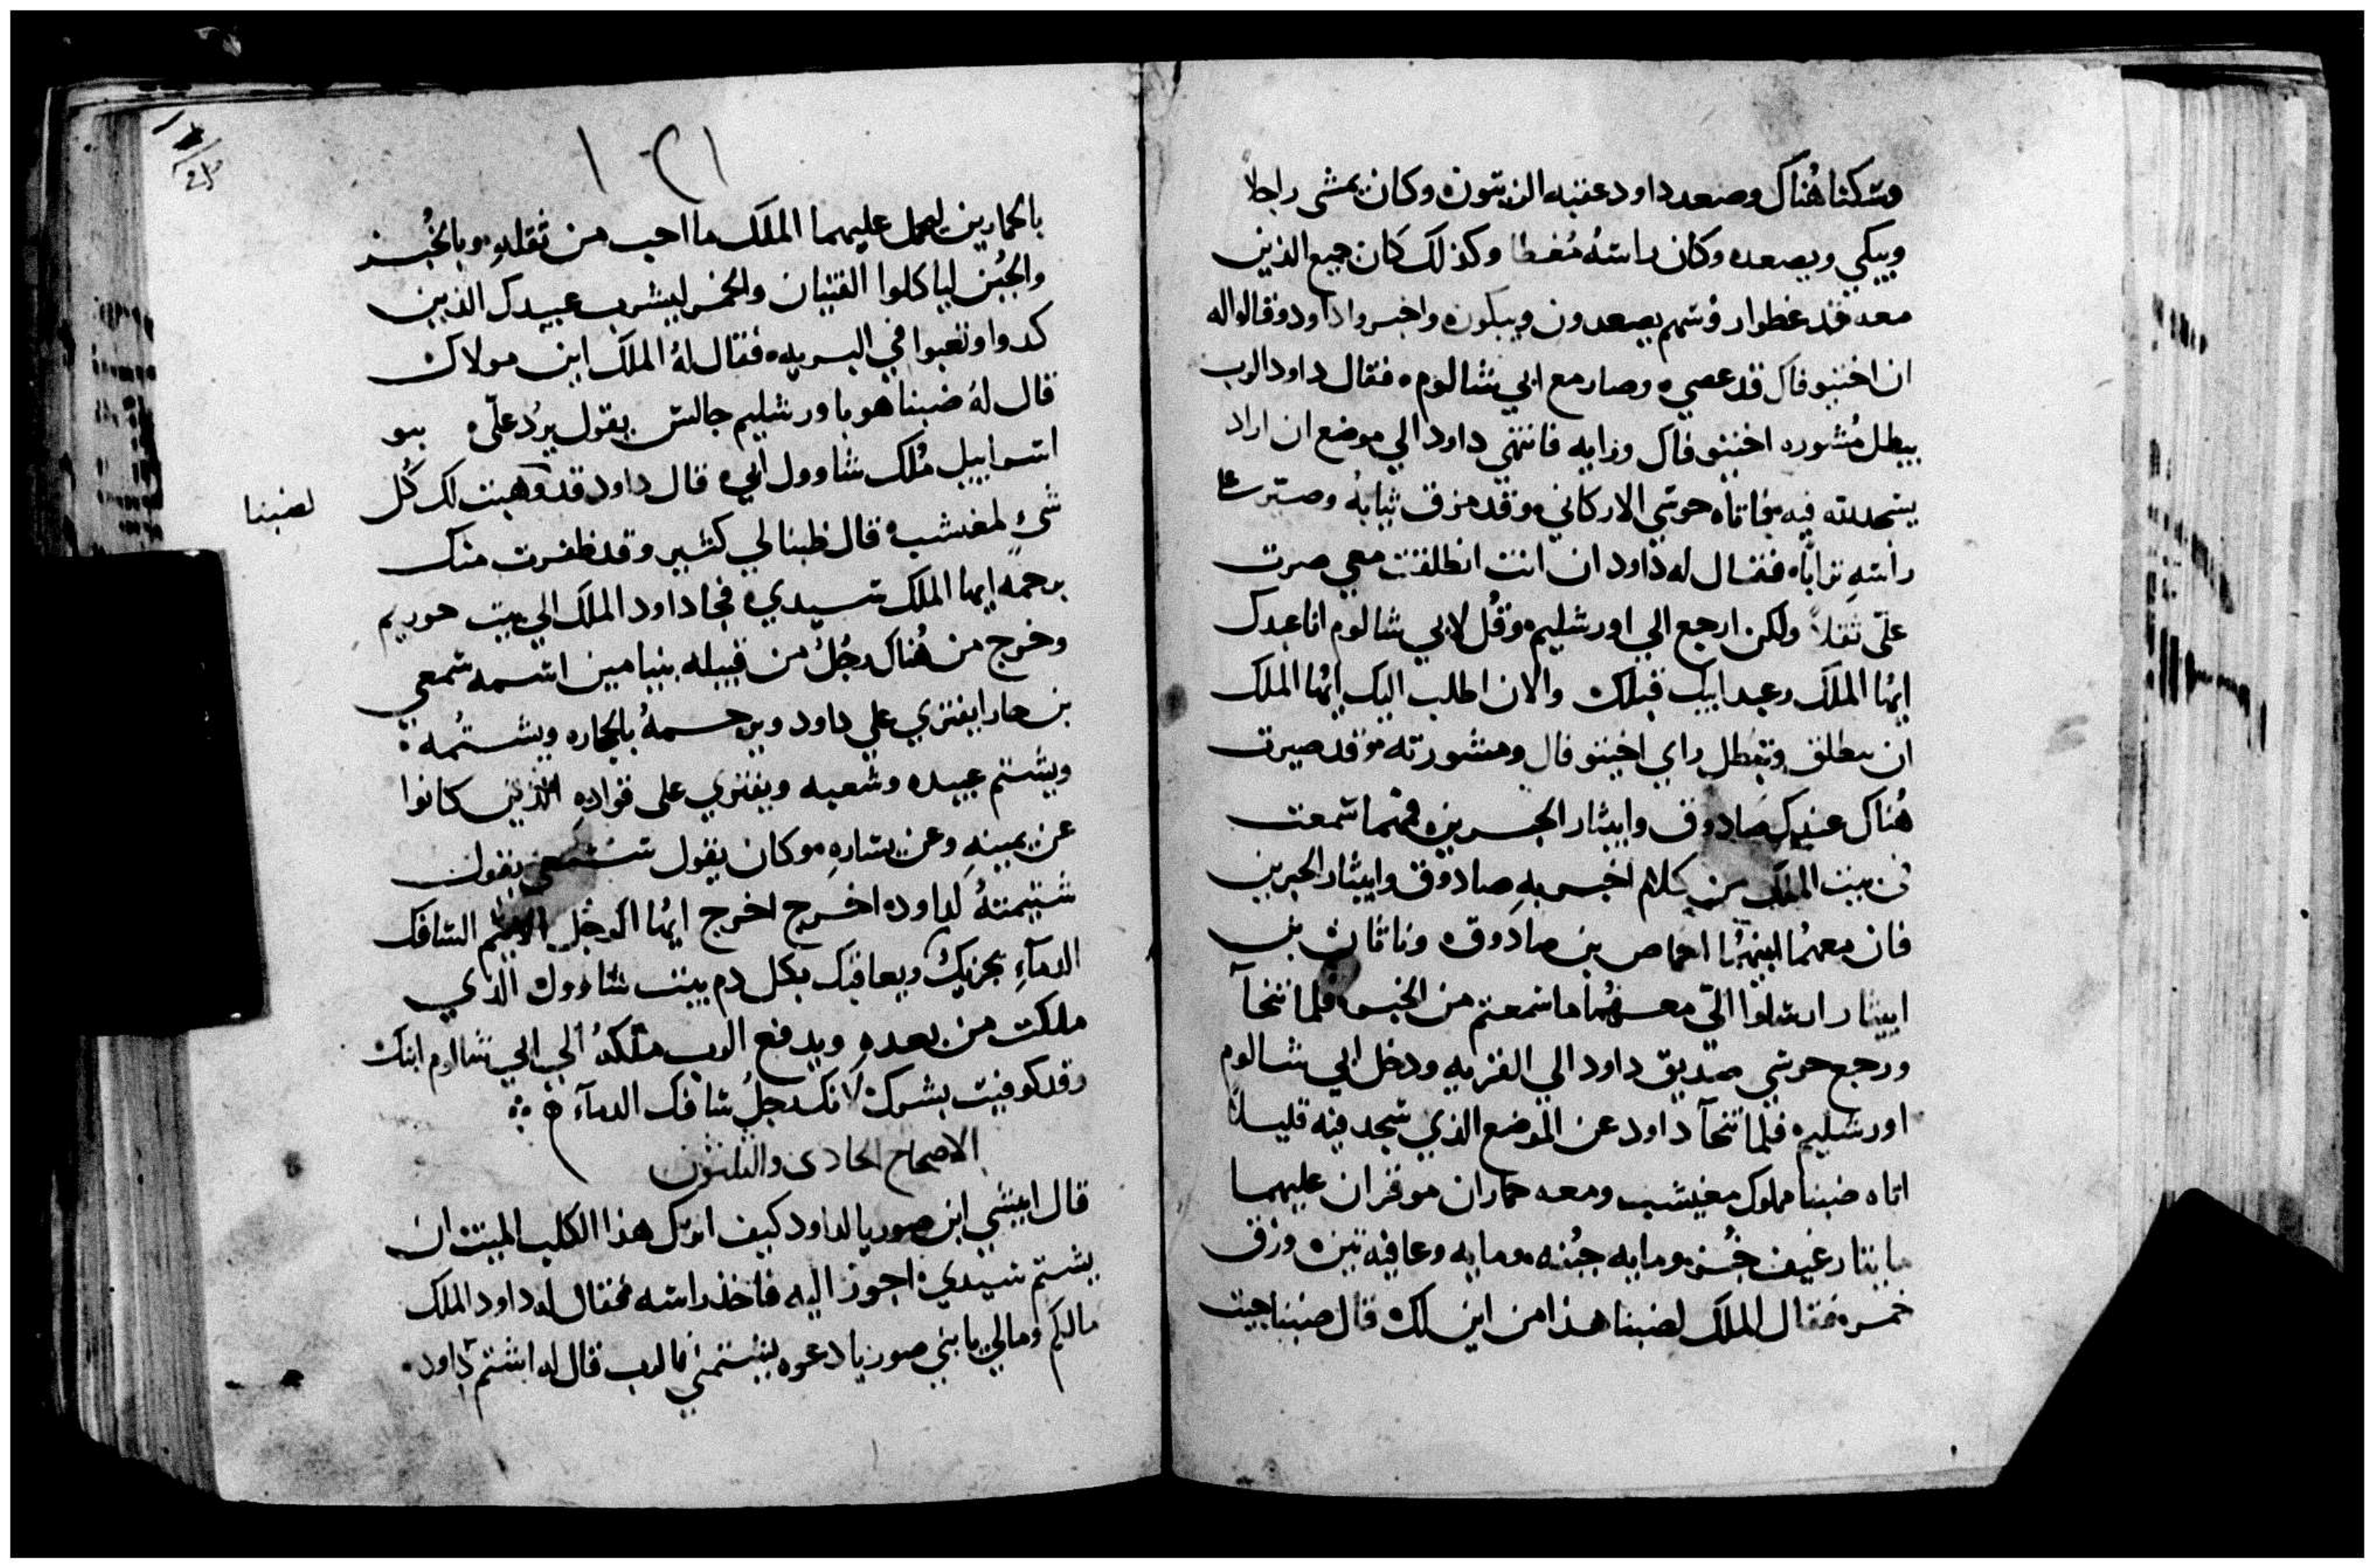 وسكنا هُناك وصعد داود عقبه الزيتون وكان يمشى راجلا
ويبكي ويصعد وكان راسهُ مُغطا وكذلك كان جميع الذين
معه قد غطوا روسهم يصعدون ويبكون واخبروا داود وقالوا له
ان اختيوفال قد عصي وصار مع ابي شالوم فقال داود الرب
يبطل مُشوره اختيوفال ورايه فانتهي داود الي موضع ان اراد
يسجد لله فيه فاتاه حوشي الاركاني وقد مزق ثيابهُ وصير علي
راسهِ تراباً فقال له داود ان انت انطلقت معي صرت
عليّ ثقلاً ولكن ارجع الي اورشليم وقُل لابي شالوم انا عبدك
ايُها الملك وعبد ابيك قبلك والان اطلب اليك ايُها الملك
ان وتبطل راي اختيوفال ومشورته وقد صيرت
هُناك عندك صادوق وابيثار الحبرين فمهما سمعت
في بيت الملك من كلام اخبر بهِ صادوق وابيثار الحبرين
فان معهُما ابنيهُما احماص بن صادوق وناثان بن
ابيثار ارسلوا اليّ معهُما ما سمعتم من الخبر فلما تنحآ
ورجع حوشي صديق داود الي القريه ودخل ابي شالوم
اورشليم فلما تنحآ داود عن الموضع الذي سجد فيه قليلاً
اتاه ضبنا مملوك مغيبشب ومعه حماران موقران عليهما
مايتا رغيف خُبز ومايه جبُنه ومايه وعاقيه تين وزق
خمر فقال الملك لضبنا هذا من اين لك قال ضبنا جيت
١٢١
بالحمارين ليحمل عليهما الملك ما احب من ثقلهِ وبالخُبز
والجُبن لياكلوا الفتيان والخمر ليشرب عبيدك الذين
كدوا وتعبوا في البريه فقال لهُ الملك اين مولاك
قال لهُ ضبنا هو باورشليم جالس يقول يردُ عليّ بنو
اسراييل مُلك شاوول ابي قال داود قد وهبت لك كُل
لضبنا
شيٍ لمغيبشب قال ظبنا لي كثير وقد ظفرت منك
برحمه ايها الملك سيدي فجا داود الملك الي بيت حوريم
وخرج من هُناك رجُلٌ من قبيله بنيامين اسمه شمعي
بن حارا يفتري علي داود ويرجمهُ بالحجاره ويشتُمه
ويشتم عبيده وشعبه ويفتري على قوادهِ الذين كانوا
عن يمينهِ وعن يسارهِ وكان يقول شمعي يقول
شتيمتهُ لداود اخرج اخرج ايُها الرجُل السافك
الدمآءِ يجزيك ويعاقبك بكل دم بيت شاوول الذي
ملكت من بعدهِ ويدفع الرب مُلكهُ الي ابي شالوم ابنك
وقد كوفيت بشرك لانك رجلُ سافك الدمآء
الاصحاح الحادى والثلثون
قال ابيشي ابن صوريا لداود كيف اترك هذا الكلب الميت ان
يشتم سيدي اجوز اليه فاخذ راسه فقال له داود الملك
مالكم ومالي يا بني صوريا دعوه يشتمني فالرب قال له اشتم داود